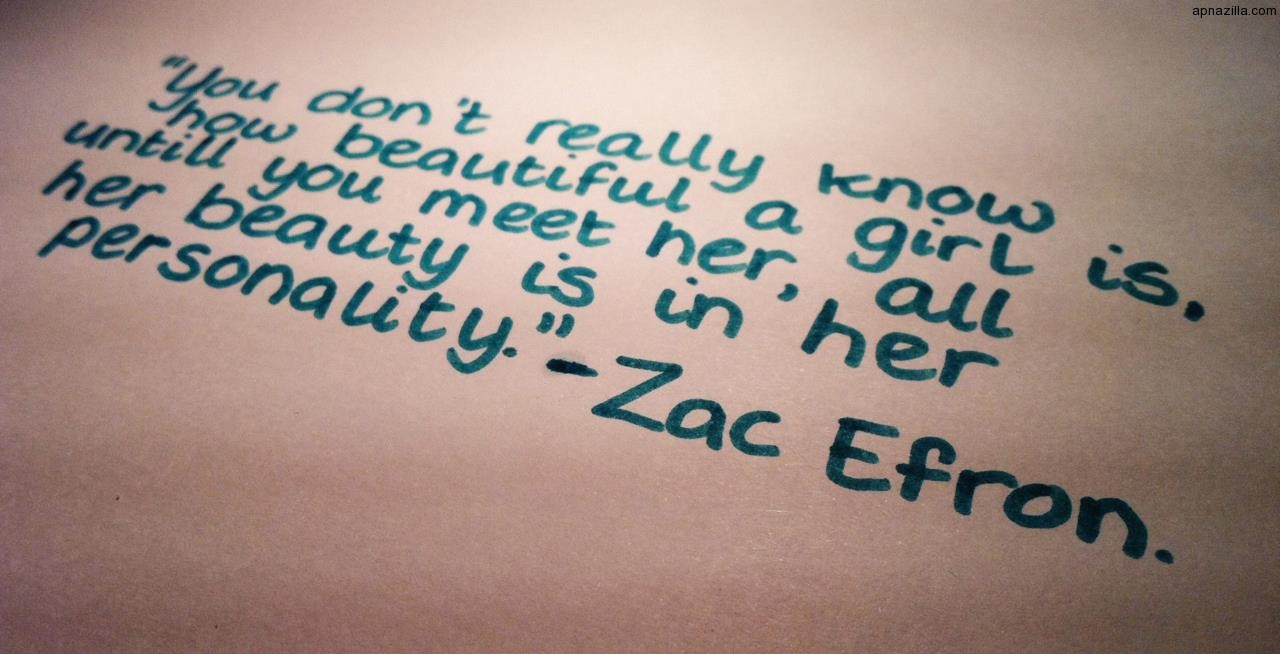 apnazilla.com
"You don't really know
how beautiful a girl is,
untill you meet her, all
her beauty is in her
personality."
-Zac Efron.